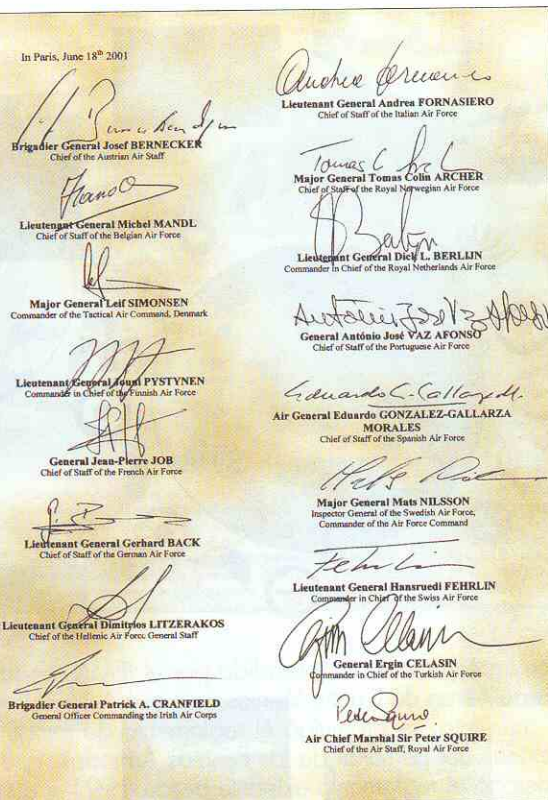 In Paris, June 18th 2001
Brigadier General Josef BERNECKER
Chief of the Austrian Air Staff
Lieutenant General Michel MANDL
Chief of Staff of the Belgian Air Force
Major General Leif SIMONSEN
Commander of the Tactical Air Command, Denmark
Lieutenant General Jouni PYSTYNEN
Commander in Chief of the Finnish Air Force
General Jean-Pierre JOB
Chief of Staff of the French Air Force
Lieutenant General Gerhard BACK
Chief of Staff of the German Air Force
Lieutenant General Dimitrios LITZERAKOS
Chief of the Hellenic Air Force General Staff
Brigadier General Patrick A. CRANFIELD
General Officer Commanding the Irish Air Corps
Lieutenant General Andrea FORNASIERO
Chief of Staff of the Italian Air Force
Major General Tomas Colin ARCHER
Chief of Staff of the Royal Norwegian Air Force
Lieutenant General Dick L. BERLIJN
Commander in Chief of the Royal Netherlands Air Force
General António José VAZ AFONSO
Chief of Staff of the Portuguese Air Force
Air General Eduardo GONZALEZ-GALLARZA
MORALES
Chief of Staff of the Spanish Air Force
Major General Mats NILSSON
Inspector General of the Swedish Air Force,
Commander of the Air Force Command
Fehrlin
Lieutenant General Hansruedi FEHRLIN
Commander in Chief of the Swiss Air Force
General Ergin CELASIN
Commander in Chief of the Turkish Air Force
Peter Squire
Air Chief Marshal Sir Peter SQUIRE
Chief of the Air Staff, Royal Air Force